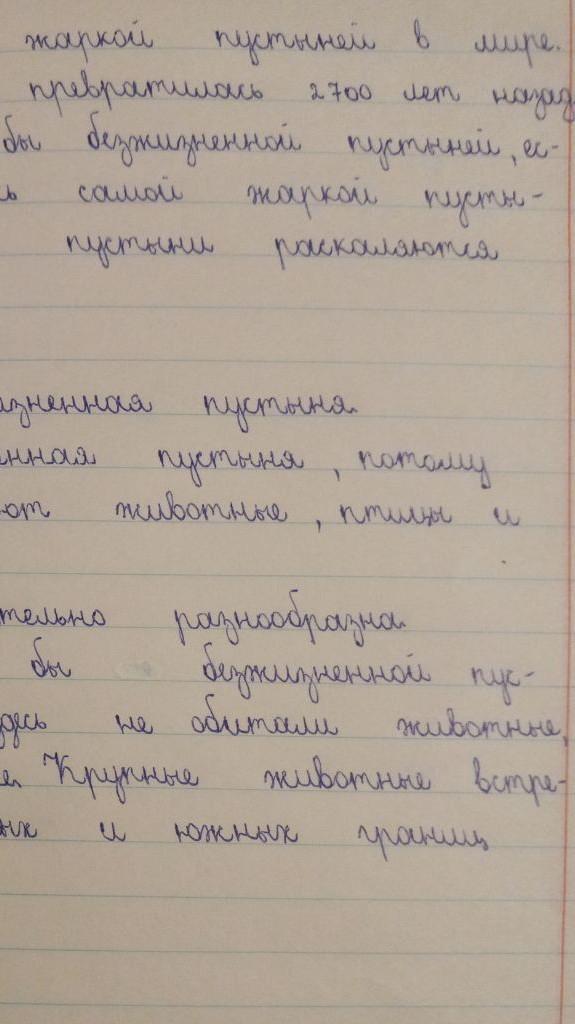 жаркой пустыней в мире.
превратилась 2700 лет назад
бы безжизненной пустыней, ес-
ь самой жаркой пусты-
пустыни раскаляются
изненная пустыня.
нная пустыня, потому
ют животные, птицы и
тельно разнообразна.
бы безжизненной пус-
здесь не обитали животные,
е. Крупные животные встре-
ых и южных границ